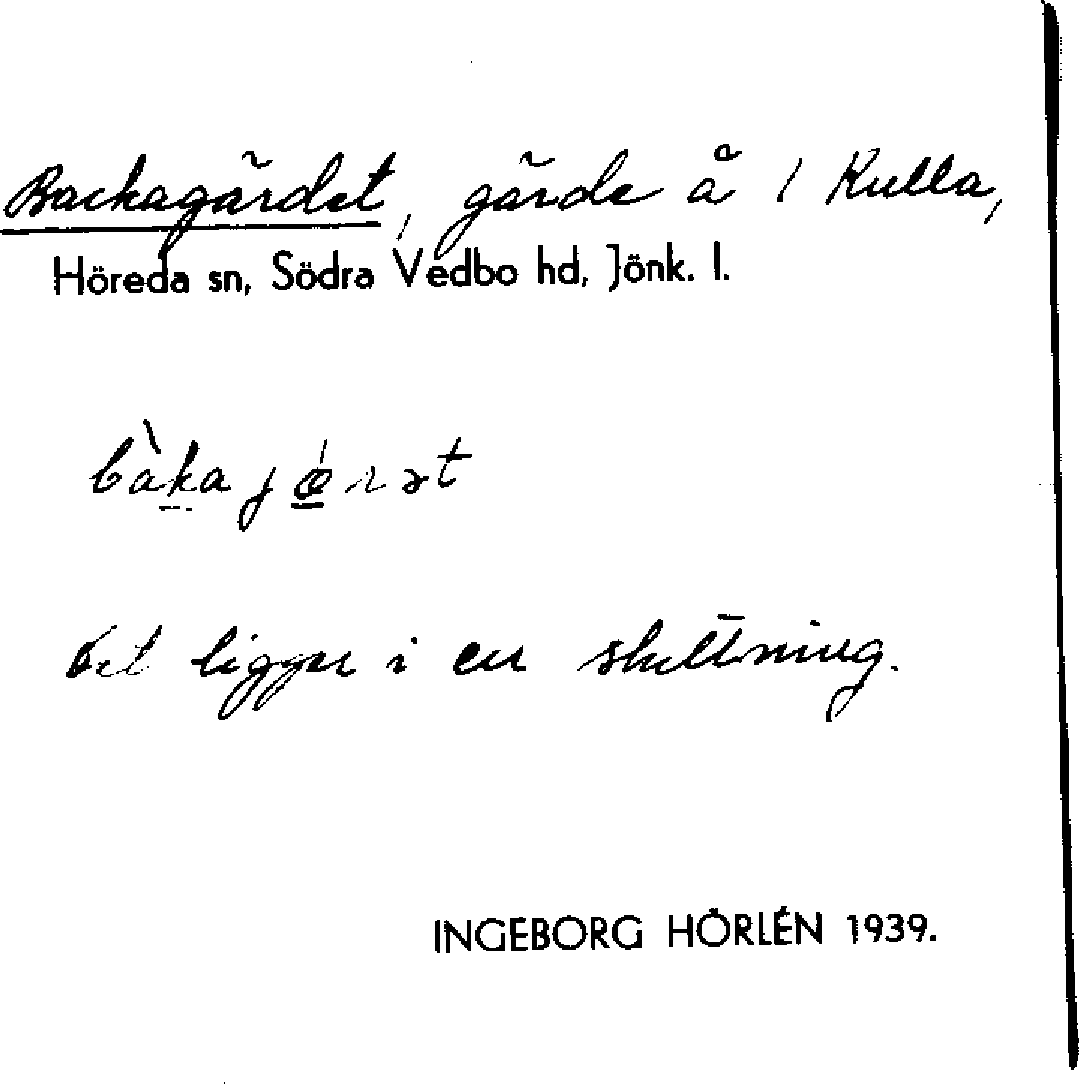 Backagärdet, gärde å 1 Kulla,
Höreda sn, Södra Vedbo hd, Jönk. l.
bàkajæ̲rət
Det ligger i en sluttning.
INGEBORG HÖRLÉN 1939.